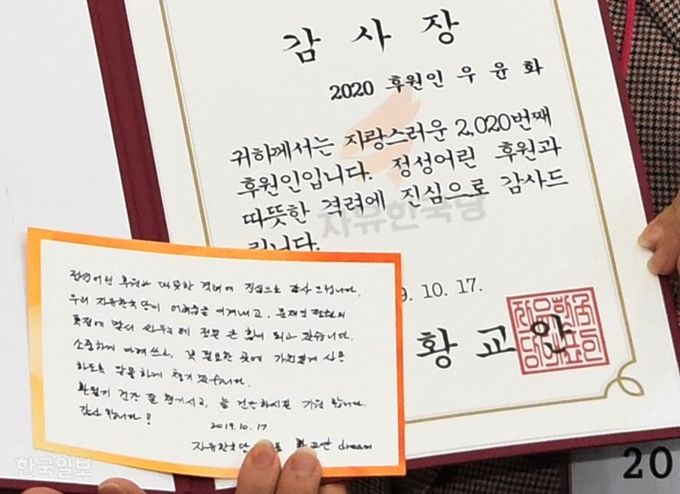 감 사 장
2020 후원인 우 윤 화
귀하께서는 자랑스러운 2,020번째
후원인입니다. 정성어린 후원과
따뜻한 격려에 진심으로 감사드
립니다.
자유한국당
9. 10. 17.
황 교 안
정성어린 후원과 따뜻한 격려에 진심으로 감사드립니다.
우리 자유한국당이 어려움을 이겨내고, 문재인 정권의
폭정에 맞서 싸우는데 정말 큰 힘이 되고 있습니다.
소중하게 아껴쓰고, 꼭 필요한 곳에 가치있게 사용
하도록 꼼꼼하게 챙기겠습니다.
환절기 건강 잘 챙기시고, 늘 건강하시길 기원 합니다.
감사 합니다!
2019. 10. 17
자유한국당 대표 황교안 dream
한국일보
20